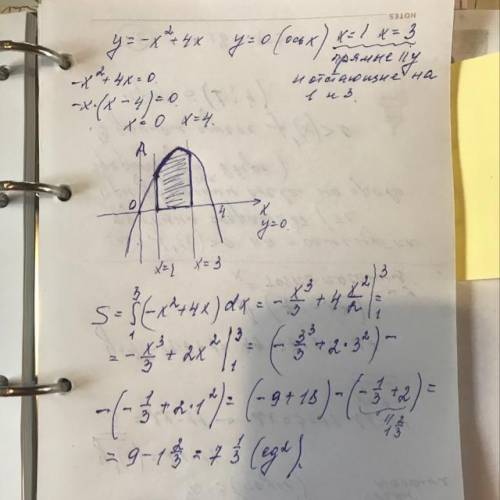 NOTES
y = -x² + 4x   y = 0 (ось x)   x = 1   x = 3
прямые || y
и отстающие на
1 и 3.
-x² + 4x = 0
-x·(x - 4) = 0
x = 0   x = 4.
0   4   x
y = 0.
x = 1   x = 3
S = ∫₁³ (-x² + 4x) dx = -x³/3 + 4 x²/2 |₁³ =
= -x³/3 + 2x² |₁³ = (-3³/3 + 2·3²) -
-(-1/3 + 2·1²) = (-9 + 18) - (-1/3 + 2) =
|| 1 2/3
= 9 - 1 2/3 = 7 1/3 (ед²).